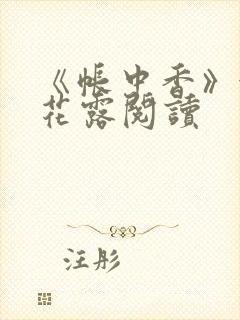 《帳中香》
花露閱讀
汪彤